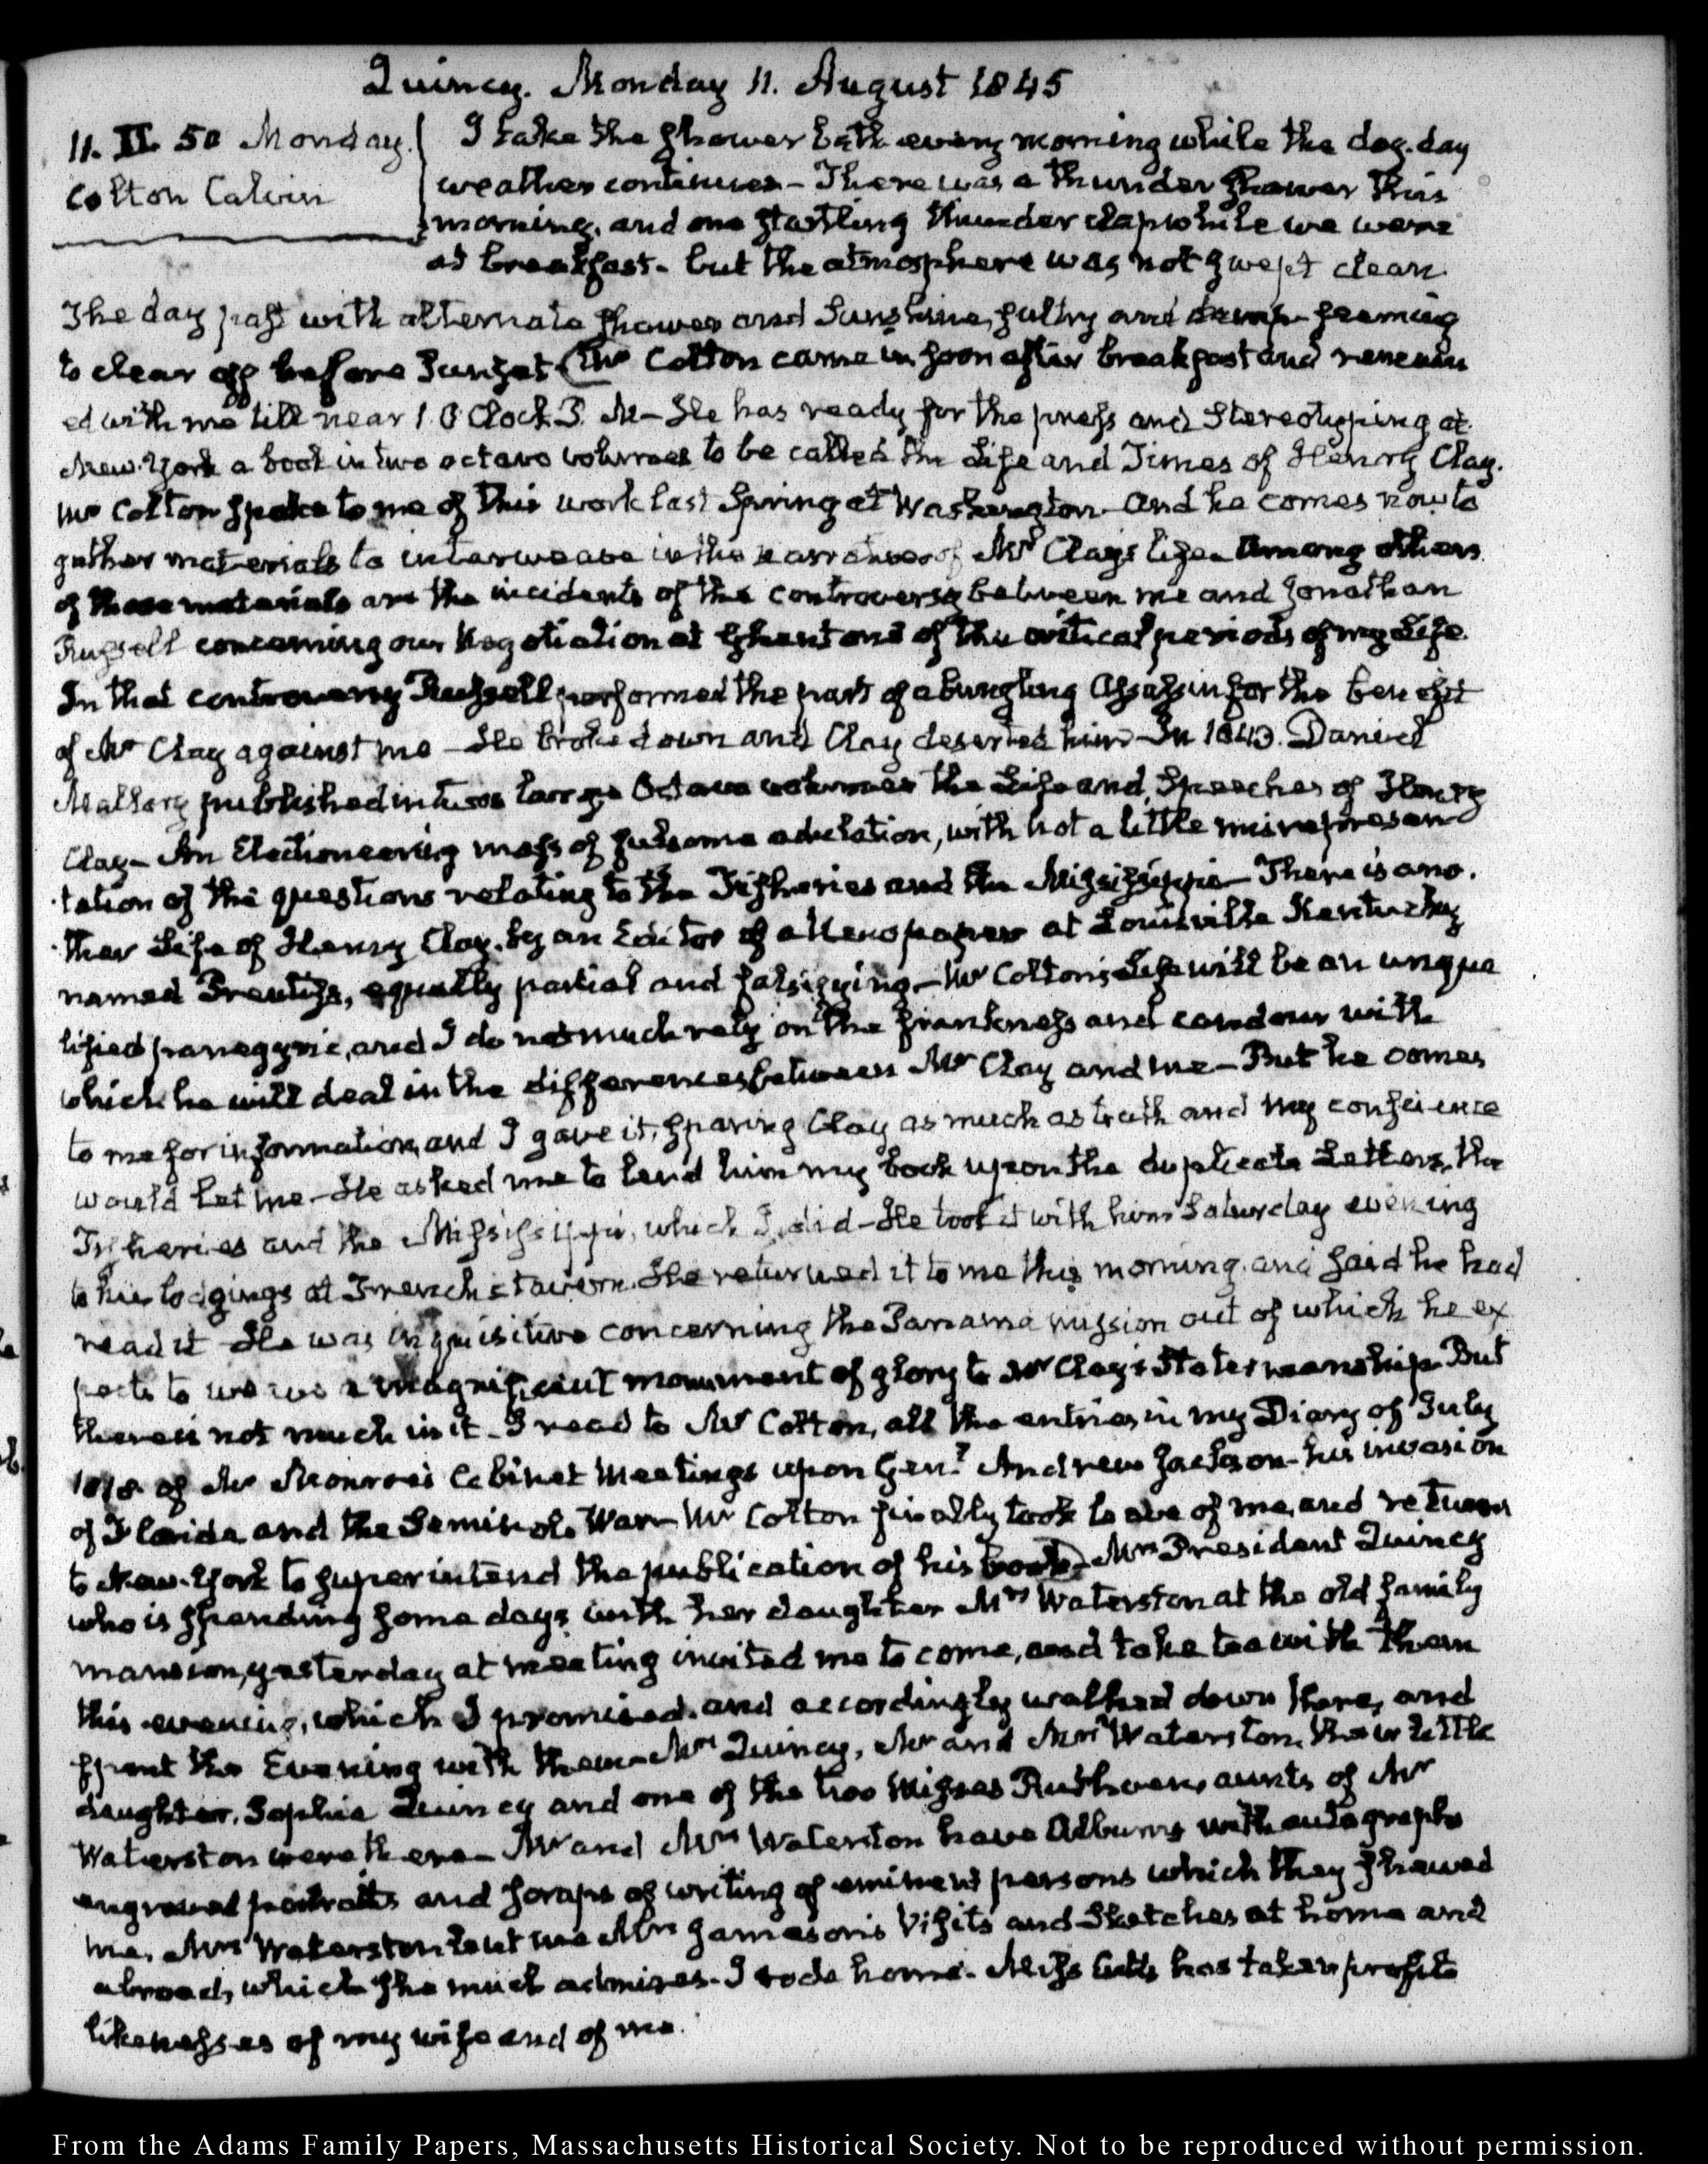 Quincy. Monday 11. August 1845
11. II. 50 Monday.
Colton Calvin
I take the shower bath every morning while the dog-day
weather continues – There was a thunder shower this
morning, and one startling thunder clap while we were
at breakfast – but the atmosphere was not swept clean.
The day past with alternate shower and Sunshine, sultry and damp seeming
to clear off before Sunset (Mr Colton came in soon after breakfast and remain
ed with me till near 1. O Clock P. M – He has ready for the press and Stereotyping at
New-York a book in two octavo volumes to be called the Life and Times of Henry Clay.
Mr Colton spoke to me of this work last Spring at Washington and he comes now to
gather materials to interweave in the narrative of Mr Clay's life. Among others
of these materials are the incidents of the controversy between me and Jonathan
Russell concerning our Negotiation at Ghent one of the critical periods of my Life.
In that controversy Russell performed the part of a bungling Assassin for the benefit
of Mr Clay against me – He broke down and Clay deserted him – In 1843. Daniel
Mallory published in two large Octavo volumes the Life and Speeches of Henry
Clay – An Electioneering mass of fulsome adulation, with not a little misrepresen
tation of the questions relating to the Fisheries and the Mississippi – There is ano.
ther Life of Henry Clay. by an Editor of a Newspaper at Louisville Kentucky
named Prentiss, equally partial and falsifying – Mr Colton's Life will be an unqua
lified panegyric, and I do not much rely on the frankness and candour with
which he will deal in the differences between Mr Clay and me – But he comes
to me for information, and I gave it, sparing Clay as much as truth and my conscience
would let me – He asked me to lend him my book upon the duplicate Letters, the
Fisheries and the Mississippi, which I did – He took it with him Saturday evening
to his lodgings at French's tavern. He returned it to me this morning, and said he had
read it – He was inquisitive concerning the Panama mission out of which he ex
pects to weave a magnificent monument of glory to Mr Clay's Statesmanship. But
there is not much in it – I read to Mr Colton, all the entries in my Diary of July
1818. of Mr Monroe's Cabinet Meetings upon Genl. Andrew Jackson – his invasion
of Florida and the Seminole War – Mr Colton finally took leave of me, and returns
to New-York to superintend the publication of his book) – Mrs President Quincy
who is spending some days with her daughter Mrs Waterston at the old family
mansion, yesterday at meeting invited me to come, and take tea with them
this evening, which I promised, and accordingly walked down there, and
spent the Evening with them – Mrs Quincy, Mr and Mrs Waterston, their little
daughter, Sophia Quincy and one of the two Misses Ruthven, aunts of Mr
Waterston were there – Mr and Mrs Waterston have Albums with autographs
engraved portraits and scraps of writing of eminent persons which they shewed
me. Mrs Waterston lent me Mrs Jameson's Visits and Sketches at home and
abroad, which she much admires – I rode home. Miss has taken profile
likenesses of my wife and of me.
From the Adams Family Papers, Massachusetts Historical Society. Not to be reproduced without permission.